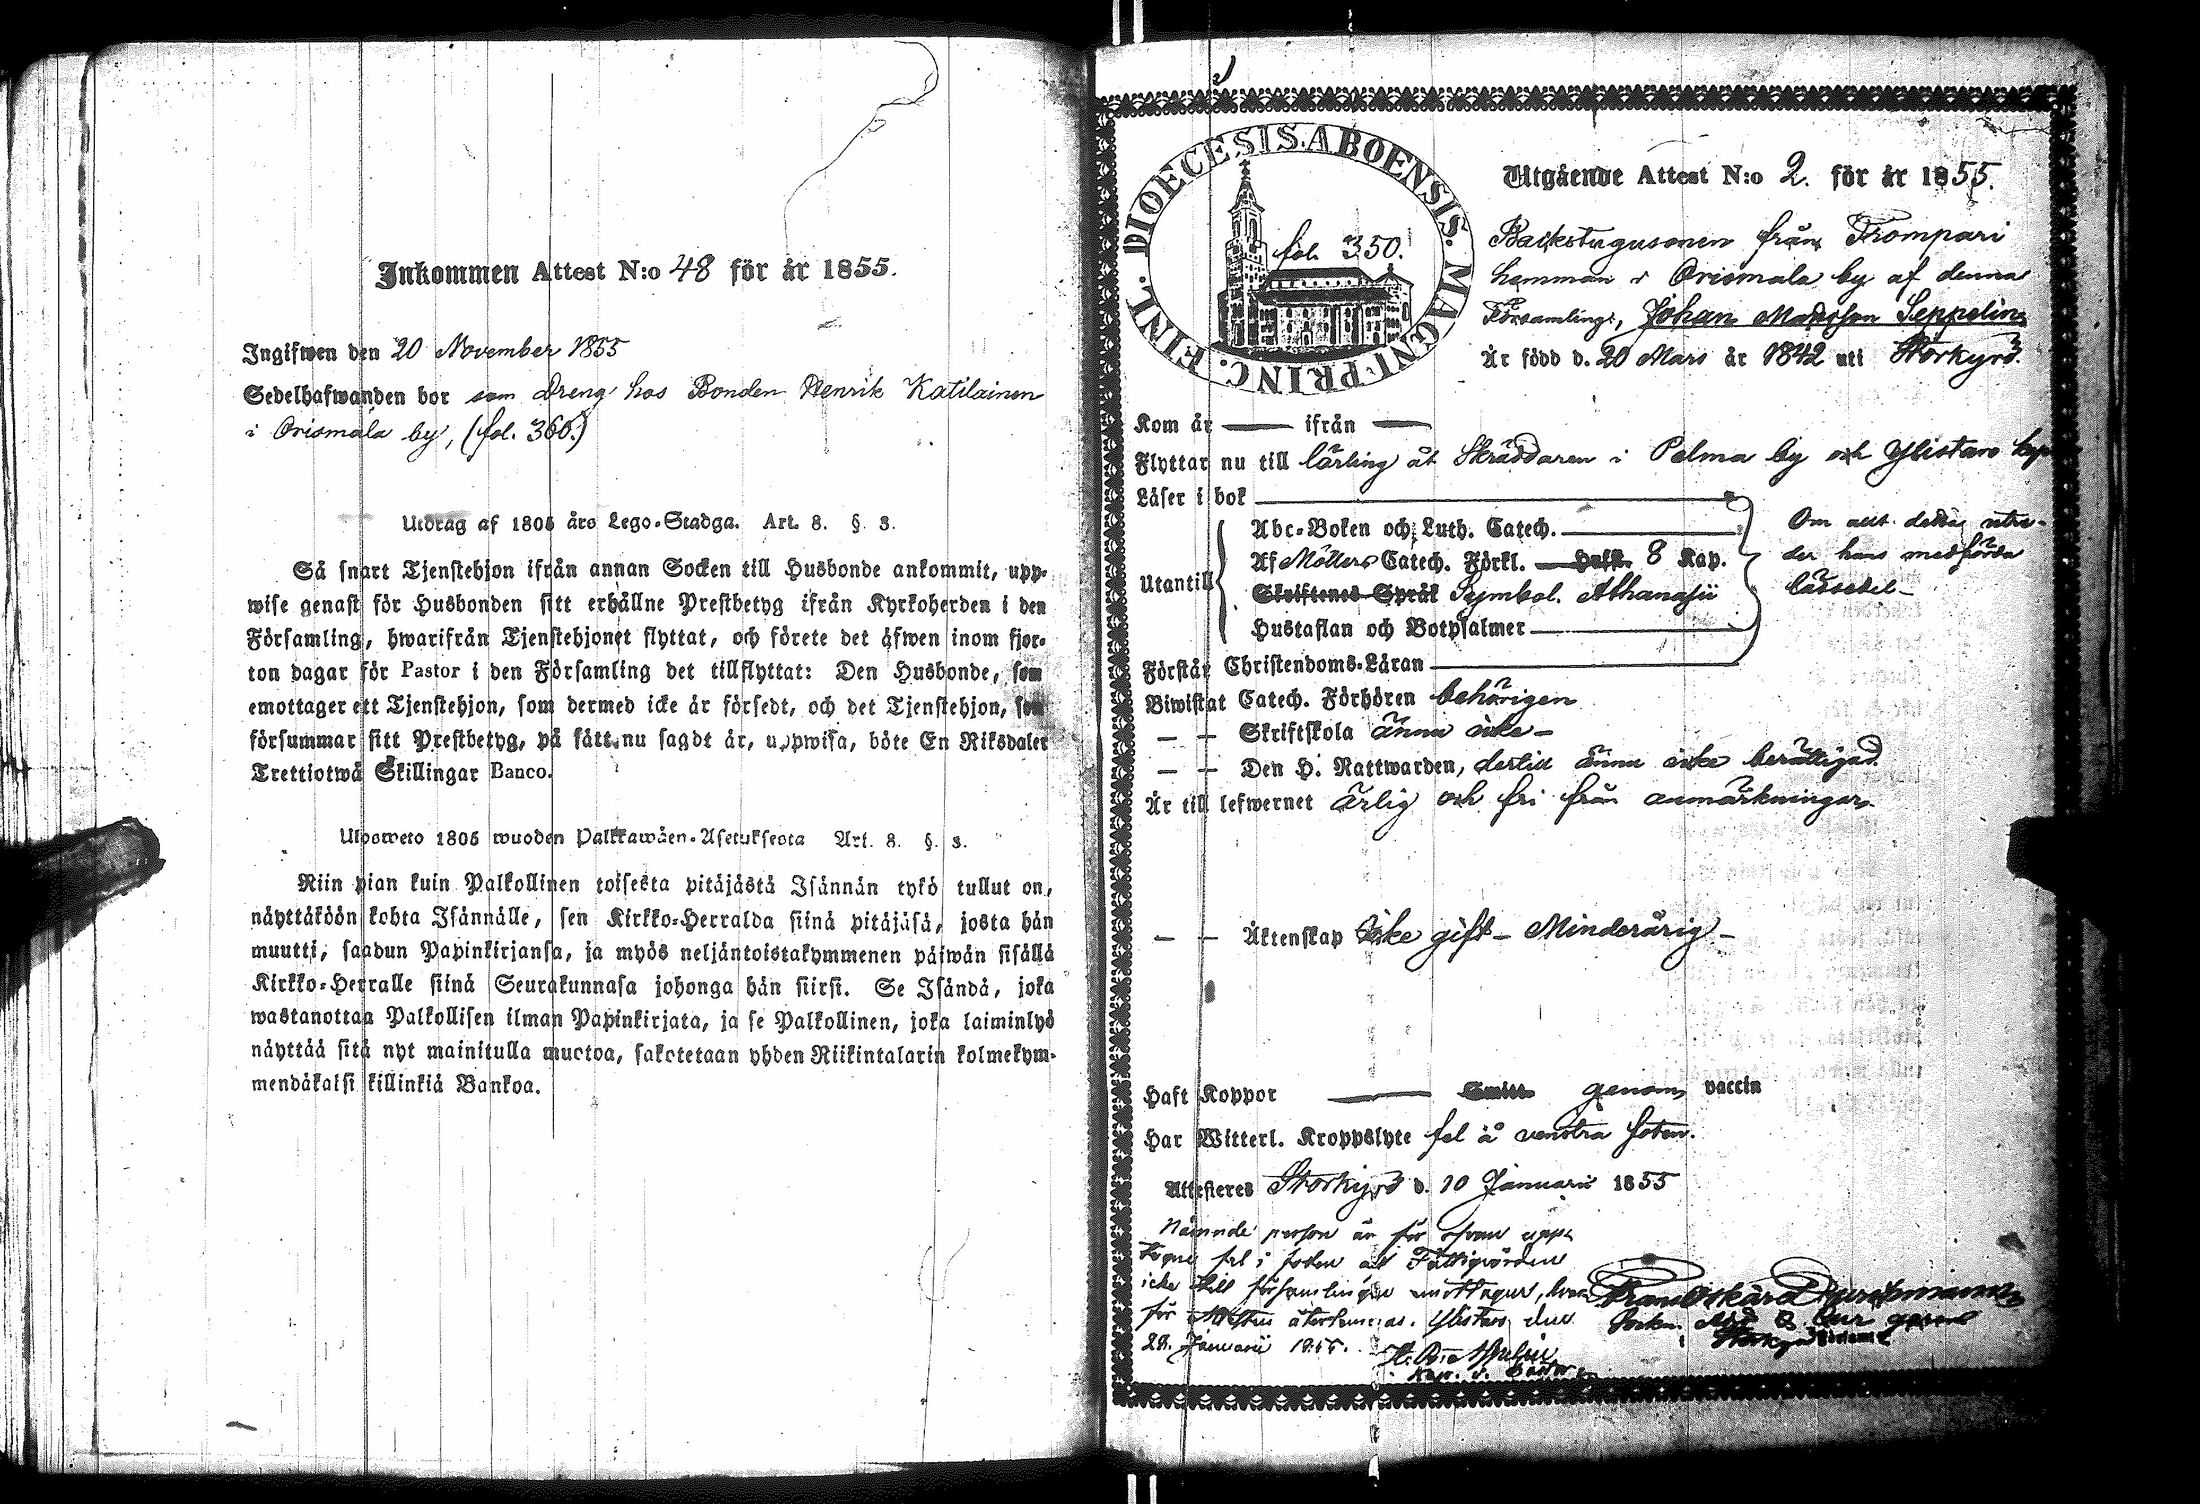 Inkommen Attest N:o 48 för år 1855.
Ingifwen den 20 November 1855
Sedelhafwanden bor som Dreng hos Bonden Henrik Katilainen
i Orismala by, (fol. 366.)
Utdrag af 1805 års Lego-Stadga. Art. 8. §. 3.
Så snart Tjenstehjon ifrån annan Socken till Husbonde ankommit, upp-
wise genast för Husbonden sitt erhållne Prestbetyg ifrån Kyrkoherden i den
Församling, hwarifrån Tjenstehjonet flyttat, och förete det äfwen inom fjor-
ton dagar för Pastor i den Församling det tillflyttat: Den Husbonde, som
emottager ett Tjenstehjon, som dermed icke är försedt, och det Tjenstehjon, som
försummar sitt Prestbetyg, på sätt nu sagdt är, uppwisa, böte En Riksdaler
Trettiotwå Skillingar Banco.
Ulosweto 1805 wuoden Palkkawäen-Asetuksesta Art. 8. §. 3.
Niin pian kuin Palkollinen toisesta pitäjästä Isännän tykö tullut on,
näyttäköön kohta Isännälle, sen Kirkko-Herralda siinä pitäjäsä, josta hän
muutti, saadun Papinkirjansa, ja myös neljäntoistakymmenen päiwän sisällä
Kirkko-Herralle siinä Seurakunnasa johonga hän siirsi. Se Isändä, joka
wastanottaa Palkollisen ilman Papinkirjata, ja se Palkollinen, joka laiminlyö
näyttää sitä nyt mainitulla muotoa, sakotetaan yhden Riikintalarin kolmekym-
mendäkaksi killinkiä Bankoa.
DIOECESIS. ABOENSIS. MAGNI. PRINC. FINL.
fol. 350.
Utgående Attest N:o 2. för år 1855.
Backstugusonen från Trompari
hemman i Orismala by af denna
Församling, Johan Mattsson Seppelin
Är född d. 20 Mars år 1842 uti Storkyro.
Kom år — ifrån —
Flyttar nu till lärling åt Skräddaren i Pelma by och Ylistaro kap
Läser i bok
Utantill
Abc-Boken och Luth. Catech.
Af Möllers Catech. Förkl. Haft. 8 Kap.
Skriftenes Språk Symbol. Athanasii
Hustaflan och Botpsalmer
Om allt detta utvi-
sar hans medförda
läsesedel
Förstår Christendoms-Läran
Biwistat Catech. Förhören behörigen
— — Skriftskola ännu icke —
— — Den H. Nattwarden, dertill ännu icke berättigad
Är till lefwernet ärlig och fri från anmärkningar.
— — Äktenskap icke gift — Minderårig —
Haft Koppor — Smitt genom vaccin
Har Witterl. Kroppslyte fel å venstra foten.
Attesteres Storkyro d. 10 Januarii 1855
Nämnde person är för ofvan upp-
tagne fel i foten af Fattigvården
icke till församlingen emottagen, hvar
för Attesten återlemnas. Ylistaro den
28 Januarii 1855.
Storkyro